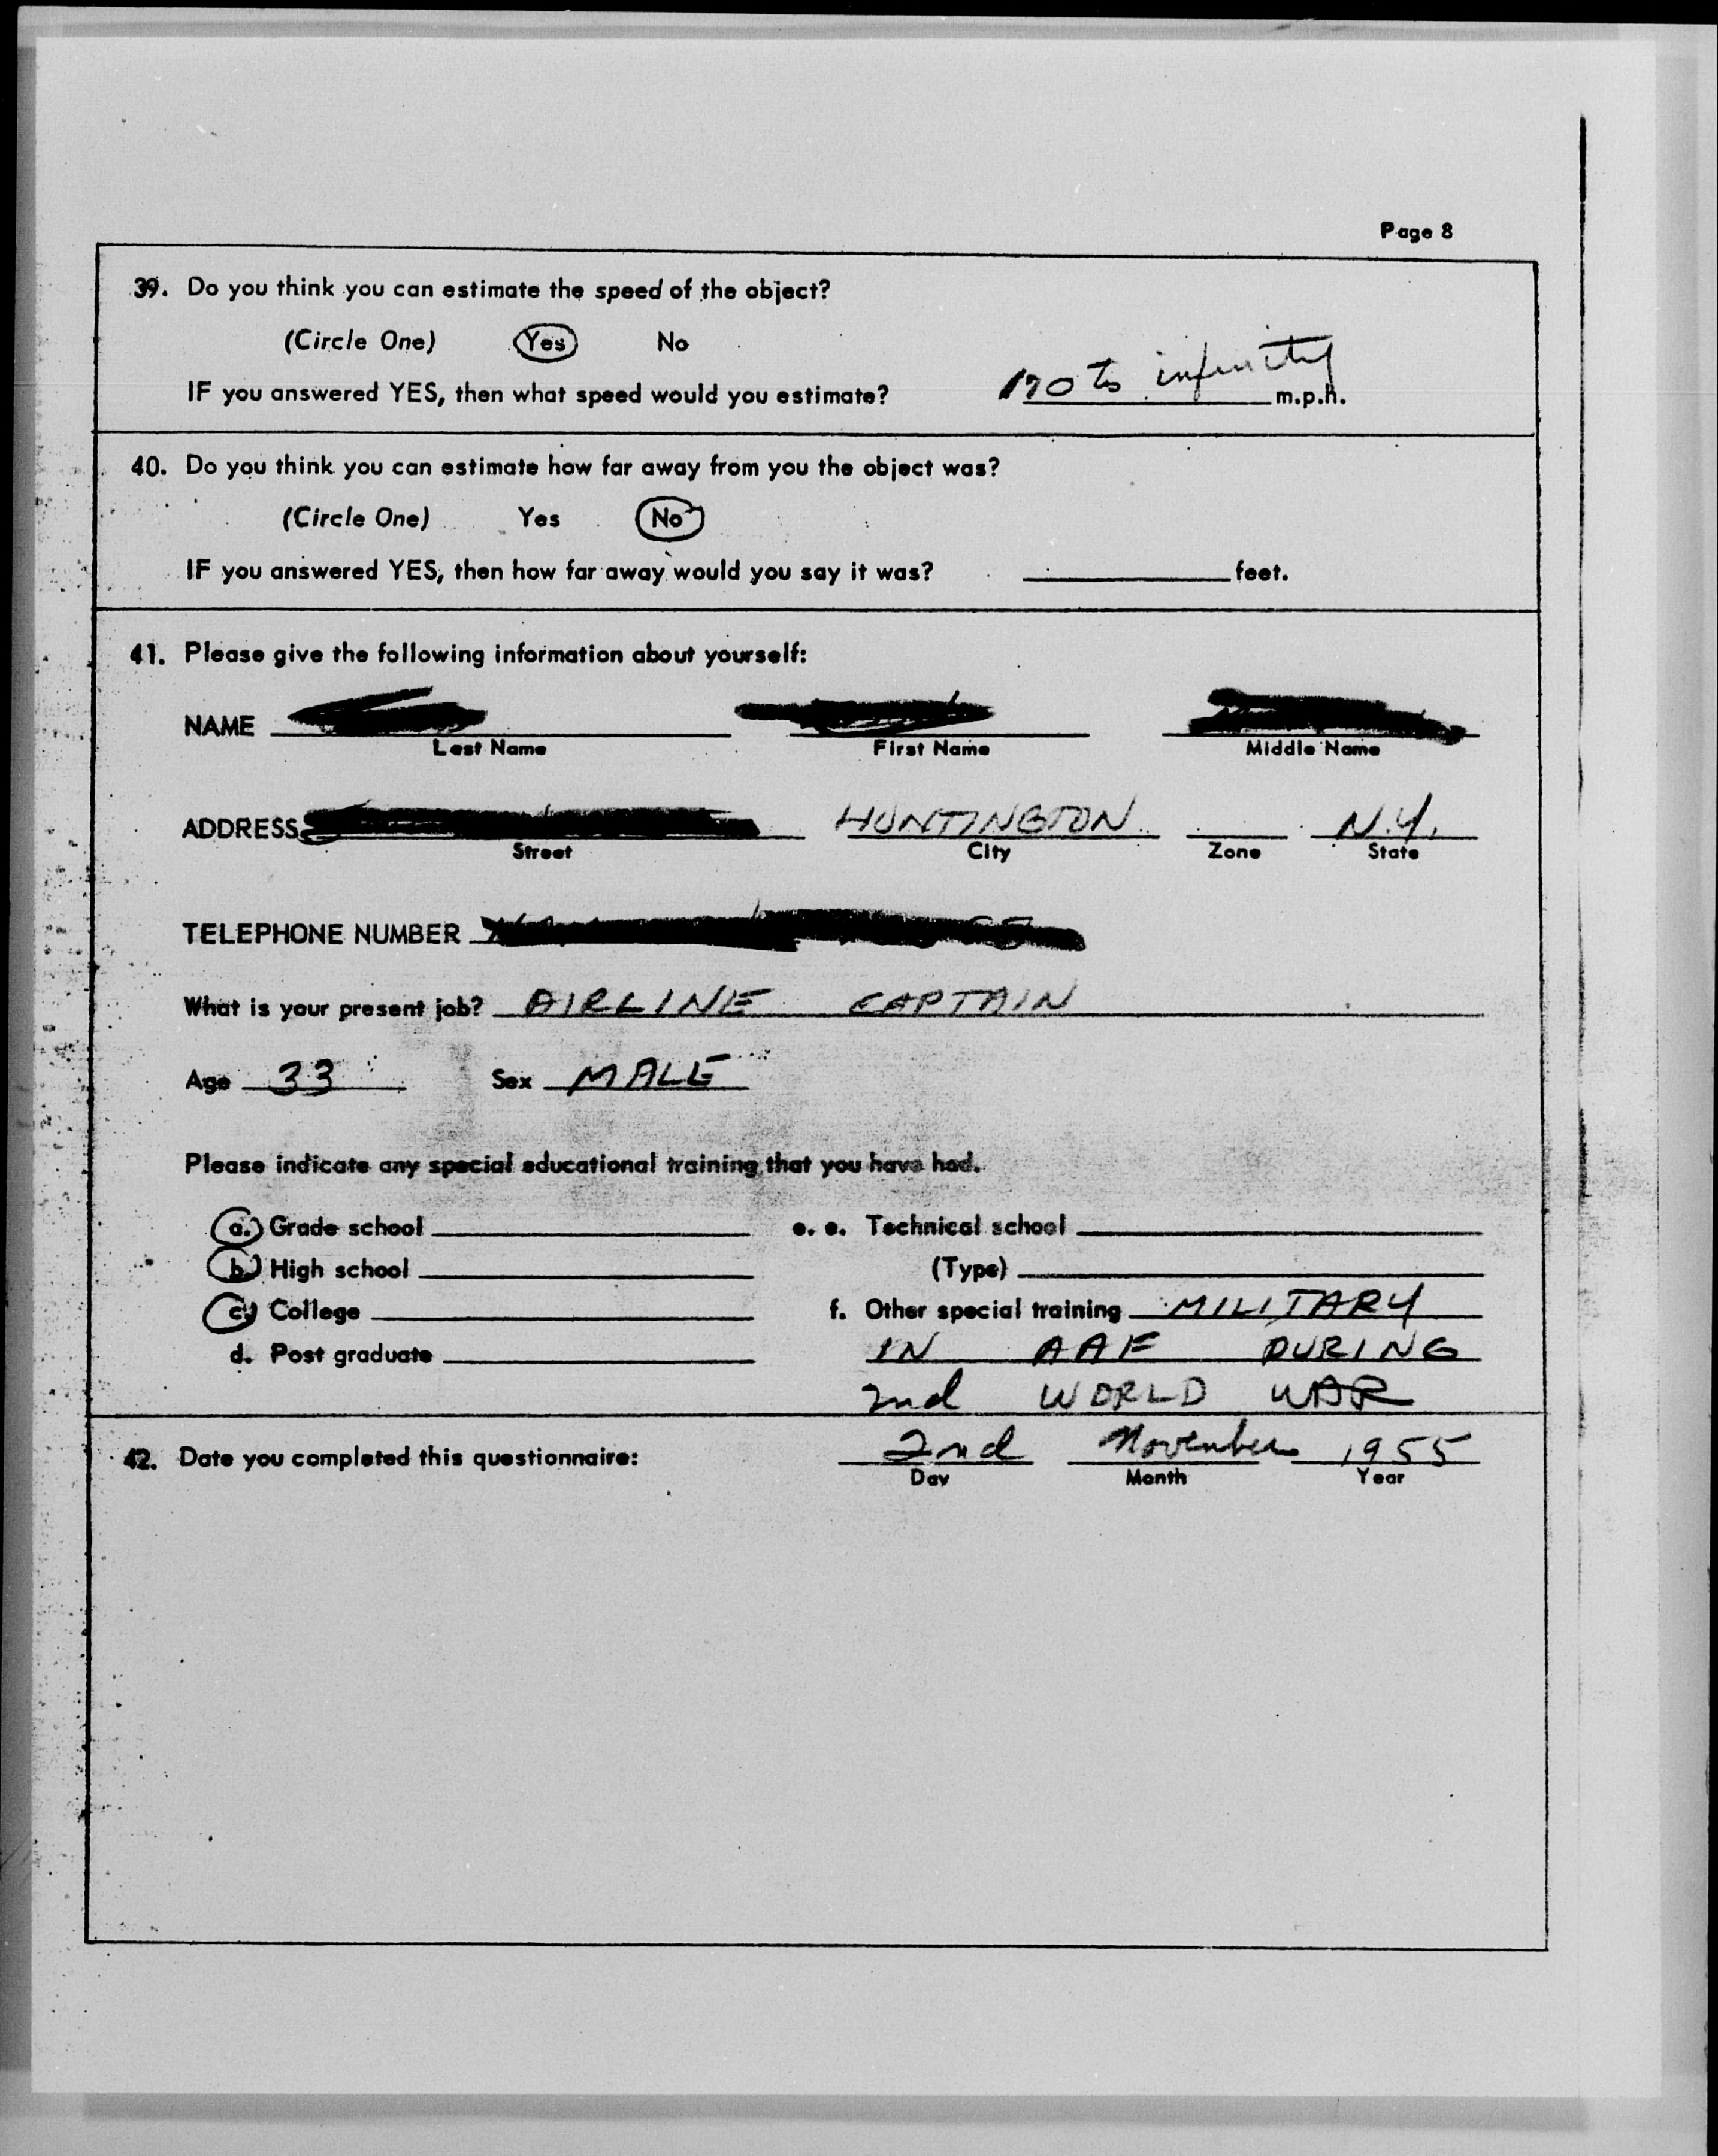 Page 8
39. Do you think you can estimate the speed of the object?
(Circle One) Yes No
IF you answered YES, then what speed would you estimate? 170 to infinity m.p.h.
40. Do you think you can estimate how far away from you the object was?
(Circle One) Yes No
IF you answered YES, then how far away would you say it was? feet.
41. Please give the following information about yourself:
NAME
Last Name First Name Middle Name
ADDRESS HUNTINGTON N.Y.
Street City Zone State
TELEPHONE NUMBER
What is your present job? AIRLINE CAPTAIN
Age 33 Sex MALE
Please indicate any special educational training that you have had.
a. Grade school e. e. Technical school
b. High school (Type)
c. College f. Other special training MILITARY
d. Post graduate IN AAF DURING
2nd WORLD WAR
42. Date you completed this questionnaire: 2nd November 1955
Day Month Year